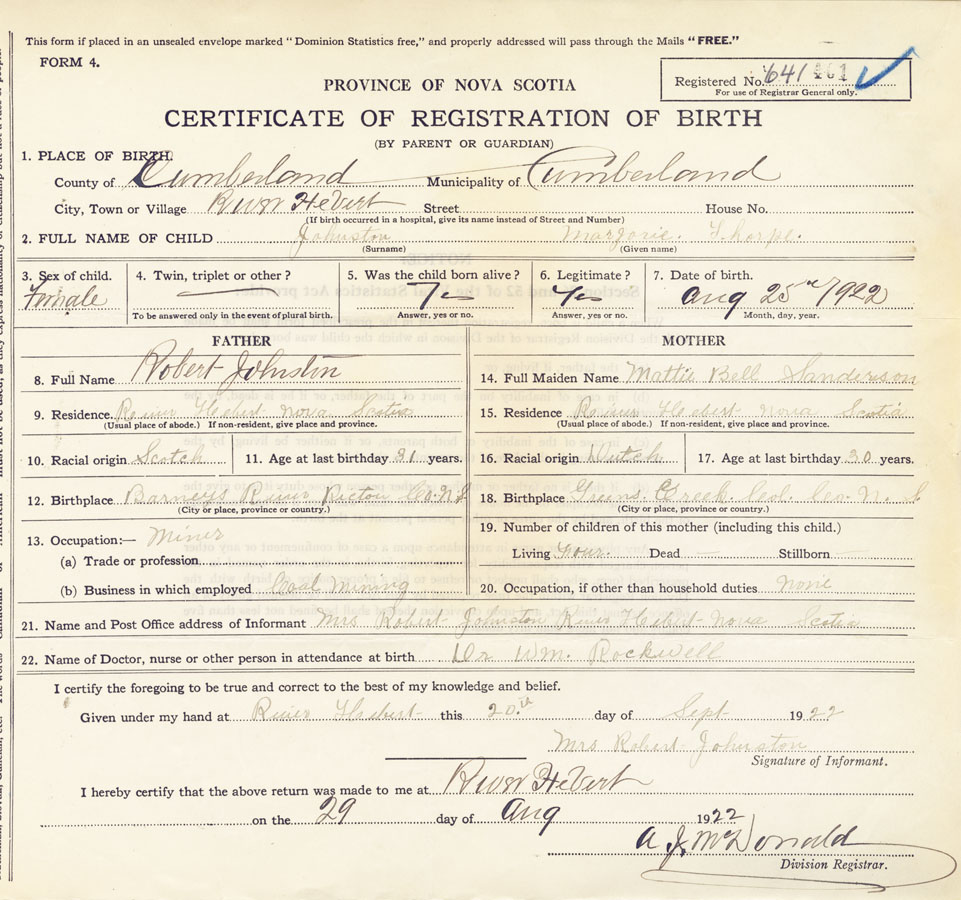 This form if placed in an unsealed envelope marked "Dominion Statistics free," and properly addressed will pass through the Mails "FREE."
FORM 4.
Registered No. 641
For use of Registrar General only.
PROVINCE OF NOVA SCOTIA
CERTIFICATE OF REGISTRATION OF BIRTH
(BY PARENT OR GUARDIAN)
1. PLACE OF BIRTH.
County of Cumberland Municipality of Cumberland
City, Town or Village River Hebert Street House No.
(If birth occurred in a hospital, give its name instead of Street and Number)
2. FULL NAME OF CHILD Johnston Marjorie Thorpe.
(Surname) (Given name)
3. Sex of child. 4. Twin, triplet or other? 5. Was the child born alive? 6. Legitimate? 7. Date of birth.
Female Yes Yes Aug 25th 1922
To be answered only in the event of plural birth. Answer, yes or no. Answer, yes or no. Month, day, year.
FATHER MOTHER
8. Full Name Robert Johnston 14. Full Maiden Name Mattie Bell Sanderson
9. Residence. River Hebert Nova Scotia 15. Residence River Hebert Nova Scotia
(Usual place of abode.) If non-resident, give place and province. (Usual place of abode.) If non-resident, give place and province.
10. Racial origin Scotch 11. Age at last birthday 31 years. 16. Racial origin Dutch 17. Age at last birthday 30 years.
12. Birthplace Barneys River Pictou Co. N.S 18. Birthplace Creek. Col. Co. N. S
(City or place, province or country.) (City or place, province or country.)
13. Occupation:— Miner 19. Number of children of this mother (including this child.)
(a) Trade or profession. Living four. Dead — Stillborn —
(b) Business in which employed Coal Mining 20. Occupation, if other than household duties none
21. Name and Post Office address of Informant Mrs Robert Johnston River Hebert Nova Scotia
22. Name of Doctor, nurse or other person in attendance at birth Dr Wm. Rockwell
I certify the foregoing to be true and correct to the best of my knowledge and belief.
Given under my hand at River Hebert this 20th day of Sept 1922
Mrs Robert Johnston
Signature of Informant.
I hereby certify that the above return was made to me at River Hebert
on the 29 day of Aug 1922
A. J. McDonald
Division Registrar.